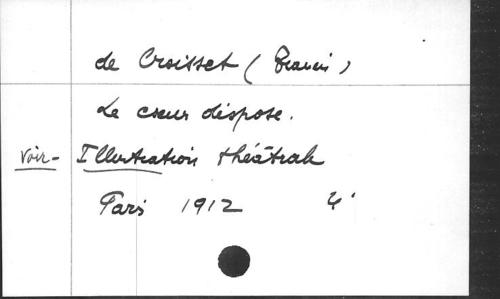 de Croisset (Francis)
Le cœur dispose.
Voir - Illustration théâtrale
Paris 1912 4°